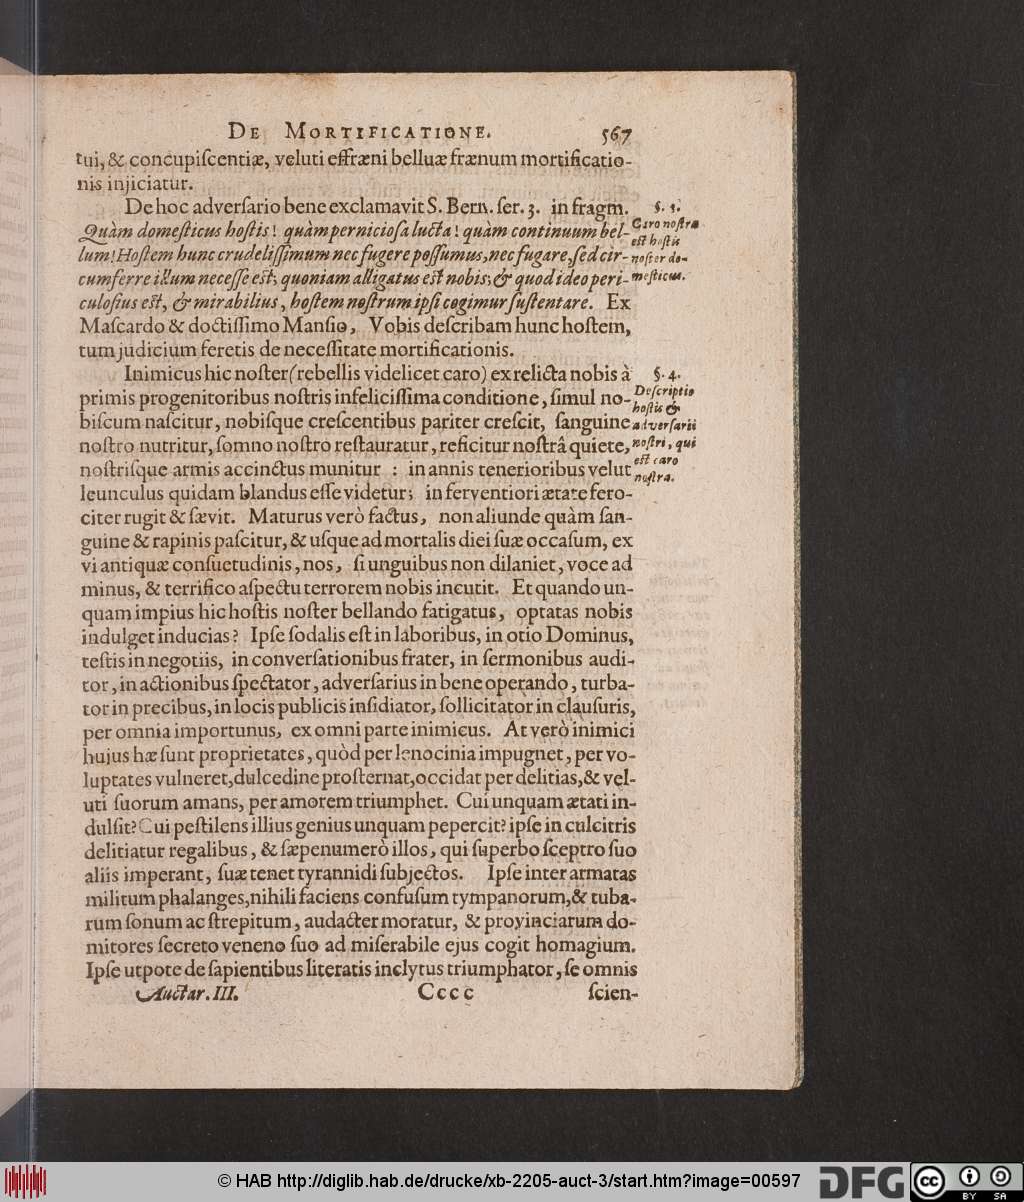 DE MORTIFICATIONE. 567
tui, & concupiſcentiæ, veluti effræni belluæ frænum mortificatio-
nis injiciatur.
De hoc adverſario bene exclamavit S. Bern. ſer. 3. in fragm.
Quàm domeſticus hoſtis! quàm pernicioſa lucta! quàm continuum bel-
lum! Hoſtem hunc crudeliſſimum nec fugere poſſumus, nec fugare, ſed cir-
cumferre illum neceſſe est; quoniam alligatus est nobis; & quod ideo peri-
culoſius est, & mirabilius, hoſtem noſtrum ipſi cogimur ſuſtentare. Ex
Maſcardo & doctiſſimo Manſio, Vobis deſcribam hunc hoſtem,
tum judicium feretis de neceſſitate mortificationis.
§. 3.
Caro noſtra
est hoſtis
noſter do-
meſticus.
Inimicus hic noſter (rebellis videlicet caro) ex relicta nobis à
primis progenitoribus noſtris infeliciſſima conditione, ſimul no-
biſcum naſcitur, nobiſque creſcentibus pariter creſcit, ſanguine
noſtro nutritur, ſomno noſtro reſtauratur, reficitur noſtrâ quiete,
noſtriſque armis accinctus munitur : in annis tenerioribus velut
leunculus quidam blandus eſſe videtur; in ferventiori ætate fero-
citer rugit & ſævit. Maturus verò factus, non aliunde quàm ſan-
guine & rapinis paſcitur, & uſque ad mortalis diei ſuæ occaſum, ex
vi antiquæ conſuetudinis, nos, ſi unguibus non dilaniet, voce ad
minus, & terrifico aſpectu terrorem nobis incutit. Et quando un-
quam impius hic hoſtis noſter bellando fatigatus, optatas nobis
indulget inducias? Ipſe ſodalis eſt in laboribus, in otio Dominus,
teſtis in negotiis, in converſationibus frater, in ſermonibus audi-
tor, in actionibus ſpectator, adverſarius in bene operando, turba-
tor in precibus, in locis publicis inſidiator, ſollicitator in clauſuris,
per omnia importunus, ex omni parte inimicus. At verò inimici
hujus hæ ſunt proprietates, quòd per lenocinia impugnet, per vo-
luptates vulneret, dulcedine proſternat, occidat per delitias, & vel-
uti ſuorum amans, per amorem triumphet. Cui unquam ætati in-
dulſit? Cui peſtilens illius genius unquam pepercit? ipſe in culcitris
delitiatur regalibus, & ſæpenumerò illos, qui ſuperbo ſceptro ſuo
aliis imperant, ſuæ tenet tyrannidi ſubjectos. Ipſe inter armatas
militum phalanges, nihili faciens confuſum tympanorum, & tuba-
rum ſonum ac ſtrepitum, audacter moratur, & provinciarum do-
mitores ſecreto veneno ſuo ad miſerabile ejus cogit homagium.
Ipſe utpote de ſapientibus literatis inclytus triumphator, ſe omnis
§. 4.
Deſcriptio
hoſtis &
adverſarii
noſtri, qui
est caro
noſtra.
Auctar. III. Cccc ſcien-
© HAB http://diglib.hab.de/drucke/xb-2205-auct-3/start.htm?image=00597
DFG
cc
BY SA